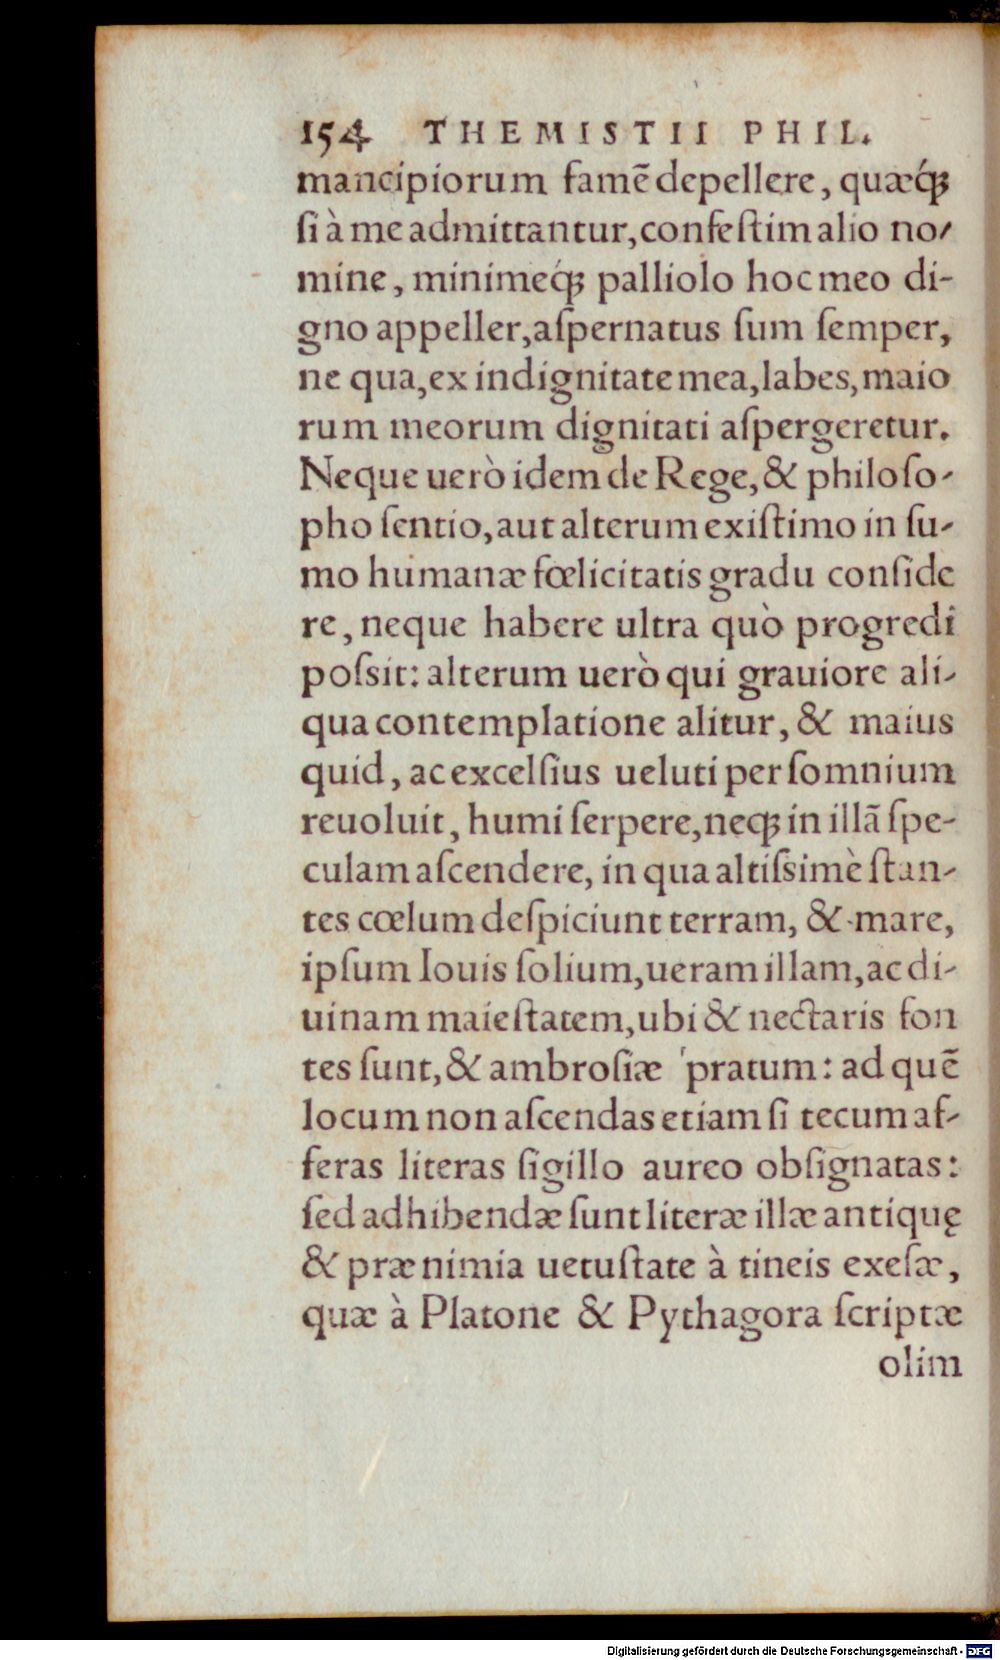 154 THEMISTII PHIL.
mancipiorum famē depellere, quæq́ꝫ
ſi à me admittantur, confeſtim alio no-
mine, minimeq́ꝫ palliolo hoc meo di-
gno appeller, aſpernatus ſum ſemper,
ne qua, ex indignitate mea, labes, maio
rum meorum dignitati aſpergeretur.
Neque uerò idem de Rege, & philoſo-
pho ſentio, aut alterum exiſtimo in ſu-
mo humanæ fœlicitatis gradu conſide
re, neque habere ultra quò progredi
poſsit: alterum uerò qui grauiore ali-
qua contemplatione alitur, & maius
quid, ac excelſius ueluti per ſomnium
reuoluit, humi ſerpere, neqꝫ in illā ſpe-
culam aſcendere, in qua altiſsimè ſtan-
tes cœlum deſpiciunt terram, & mare,
ipſum Iouis ſolium, ueram illam, ac di-
uinam maieſtatem, ubi & nectaris fon
tes ſunt, & ambroſiæ pratum: ad quē
locum non aſcendas etiam ſi tecum af-
feras literas ſigillo aureo obſignatas:
ſed adhibendæ ſunt literæ illæ antiquę
& præ nimia uetuſtate à tineis exeſæ,
quæ à Platone & Pythagora ſcriptæ
olim
Digitalisierung gefördert durch die Deutsche Forschungsgemeinschaft - DFG